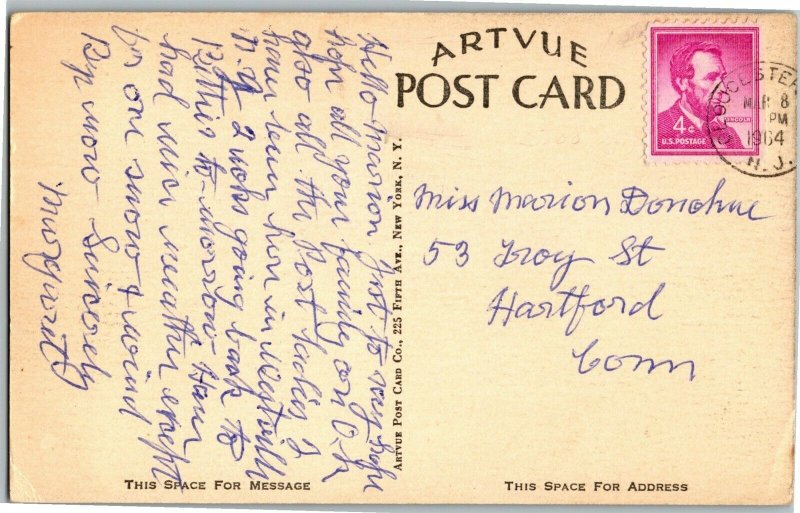 ARTVUE
POST CARD
4¢
LINCOLN
U.S. POSTAGE
GLOUCESTER
MAR 8
PM
1964
N. J.
Miss Marion Donohue
53 Troy St
Hartford
Conn
Hello Marion. Just to say hope
hope all your family are O.K
also all the Post Ladies I
have been here in Westville
N.J. 2 weks going back to
to-morrow Have
had nice weather except
for one snow + wind
Bye now - Sincerely
Margaret
ARTVUE POST CARD CO., 225 FIFTH AVE., NEW YORK, N. Y.
THIS SPACE FOR MESSAGE
THIS SPACE FOR ADDRESS